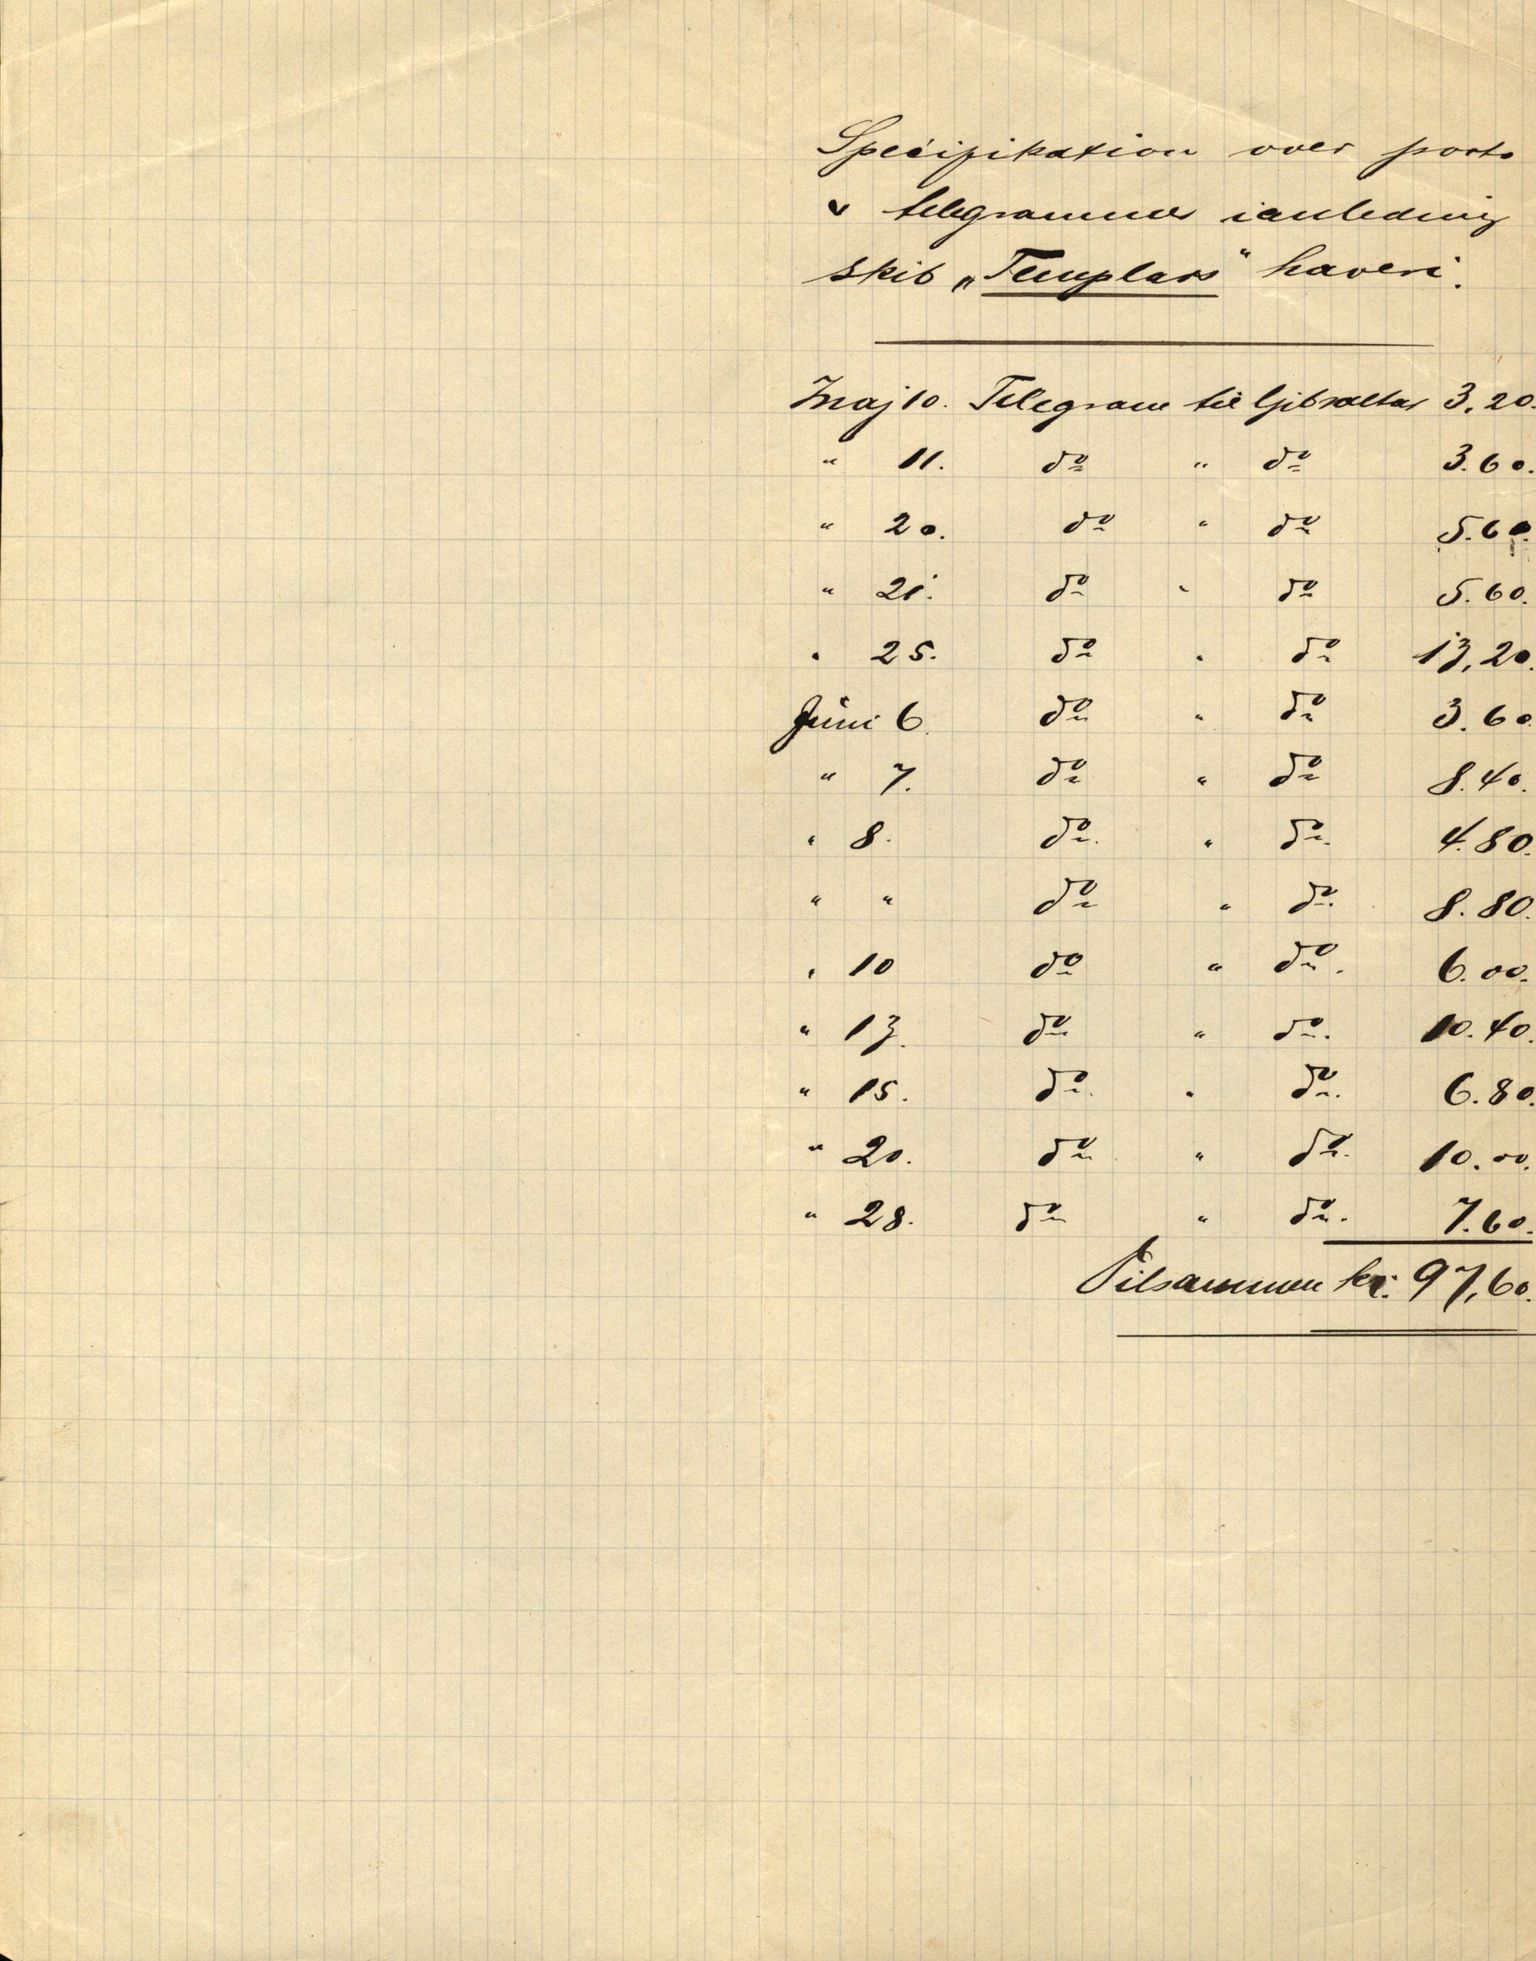 Specifikation over porto
& telegrammer ianledning
skib „Templars“ haveri.
Maj 10. Telegram til Gibraltar 3,20.
" 11. do " do 3.60.
" 20. do " do 5.60.
" 21. do " do 5.60.
" 25. do " do 13,20.
Juni 6. do " do 3.60.
" 7. do " do 8.40.
" 8. do. " do. 4.80.
" " do " do. 8.80.
" 10 do " do. 6.00.
" 13. do " do. 10.40.
" 15. do. " do. 6.80.
" 20. do " do. 10.00.
" 28. do " do. 7.60.
Tilsammen kr. 97,60.